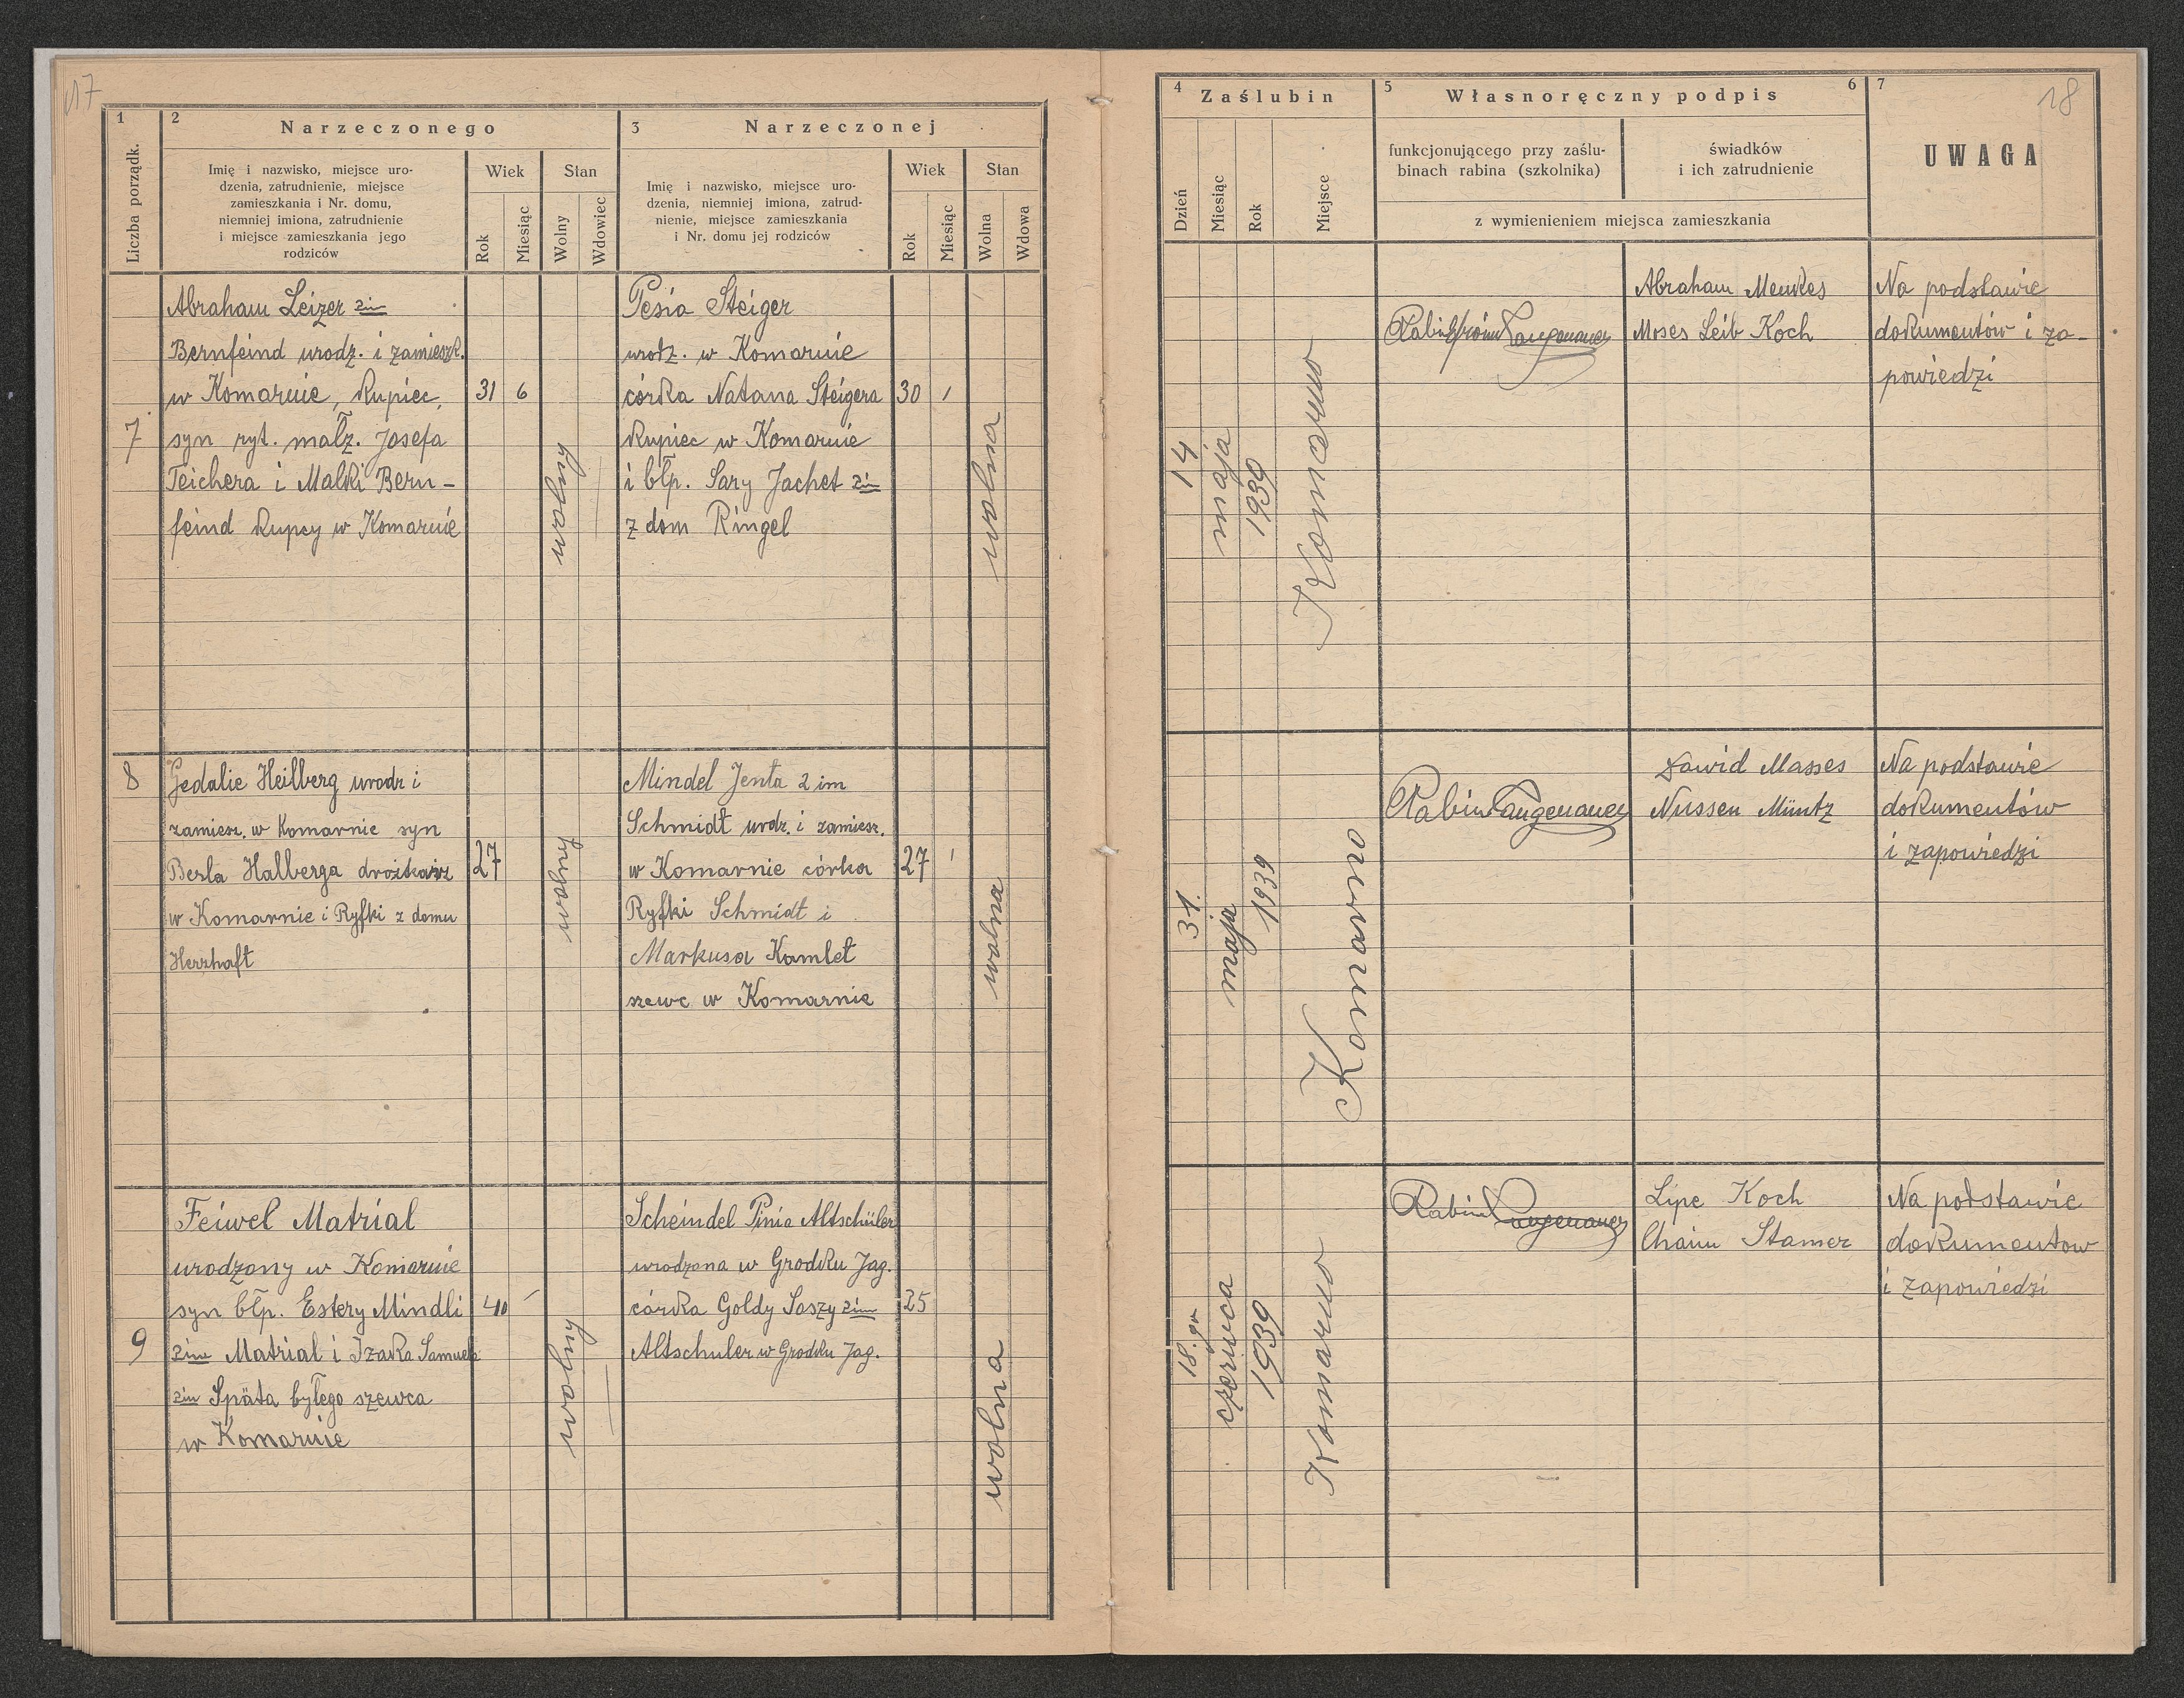 17
1
Liczba porządk.
2
Narzeczonego
Imię i nazwisko, miejsce uro-
dzenia, zatrudnienie, miejsce
zamieszkania i Nr. domu,
niemniej imiona, zatrudnienie
i miejsce zamieszkania jego
rodziców
Wiek
Rok
Miesiąc
Stan
Wolny
Wdowiec
3
Narzeczonej
Imię i nazwisko, miejsce uro-
dzenia, niemniej imiona, zatrud-
nienie, miejsce zamieszkania
i Nr. domu jej rodziców
Wiek
Rok
Miesiąc
Stan
Wolna
Wdowa
7
Abraham Leizer 2im
Bernfeind urodz. i zamieszk.
w Komarnie, kupiec,
syn ryt. małż. Josefa
Teichera i Malki Bern-
feind kupcy w Komarnie
31
6
wolny
Pesia Steiger
urodz. w Komarnie
córka Natana Steigera
kupiec w Komarnie
i błp. Sary Jachet 2im
z dom Ringel
30
1
wolna
8
Gedalie Heilberg urodz i
zamiesz. w Komarnie syn
Berla Halberga drożkarz
w Komarnie i Ryfki z domu
Herzhaft
27
wolny
Mindel Jenta 2 im
Schmidt urdz. i zamiesz.
w Komarnie córka
Ryfki Schmidt i
Markusa Kamlet
szewc w Komarnie
27
1
wolna
9
Feiwel Matrial
urodzony w Komarnie
syn błp. Estery Mindli
2im Matrial i Izaka Samuela
2im Späta byłego szewca
w Komarnie
40
wolny
Scheindel Pinia Altschüler
urodzona w Grodku Jag.
córka Goldy Soszy 2im
Altschuler w Grodku Jag.
25
wolna
18
4
Zaślubin
Dzień
Miesiąc
Rok
Miejsce
5
Własnoręczny podpis
6
funkcjonującego przy zaślu-
binach rabina (szkolnika)
świadków
i ich zatrudnienie
z wymienieniem miejsca zamieszkania
7
UWAGA
14
maja
1939
Komarno
Rabin Efroim Langenauer
Abraham Menkes
Moses Leib Koch
Na podstawie
dokumentów i za-
powiedzi
31.
maja
1939
Komarno
Rabin Langenauer
Dawid Masses
Nussen Müntz
Na podstawie
dokumentów
i zapowiedzi
18.go
czerwca
1939
Komarno
Rabin Langenauer
Lipe Koch
Chaim Stamer
Na podstawie
dokumentow
i zapowiedzi